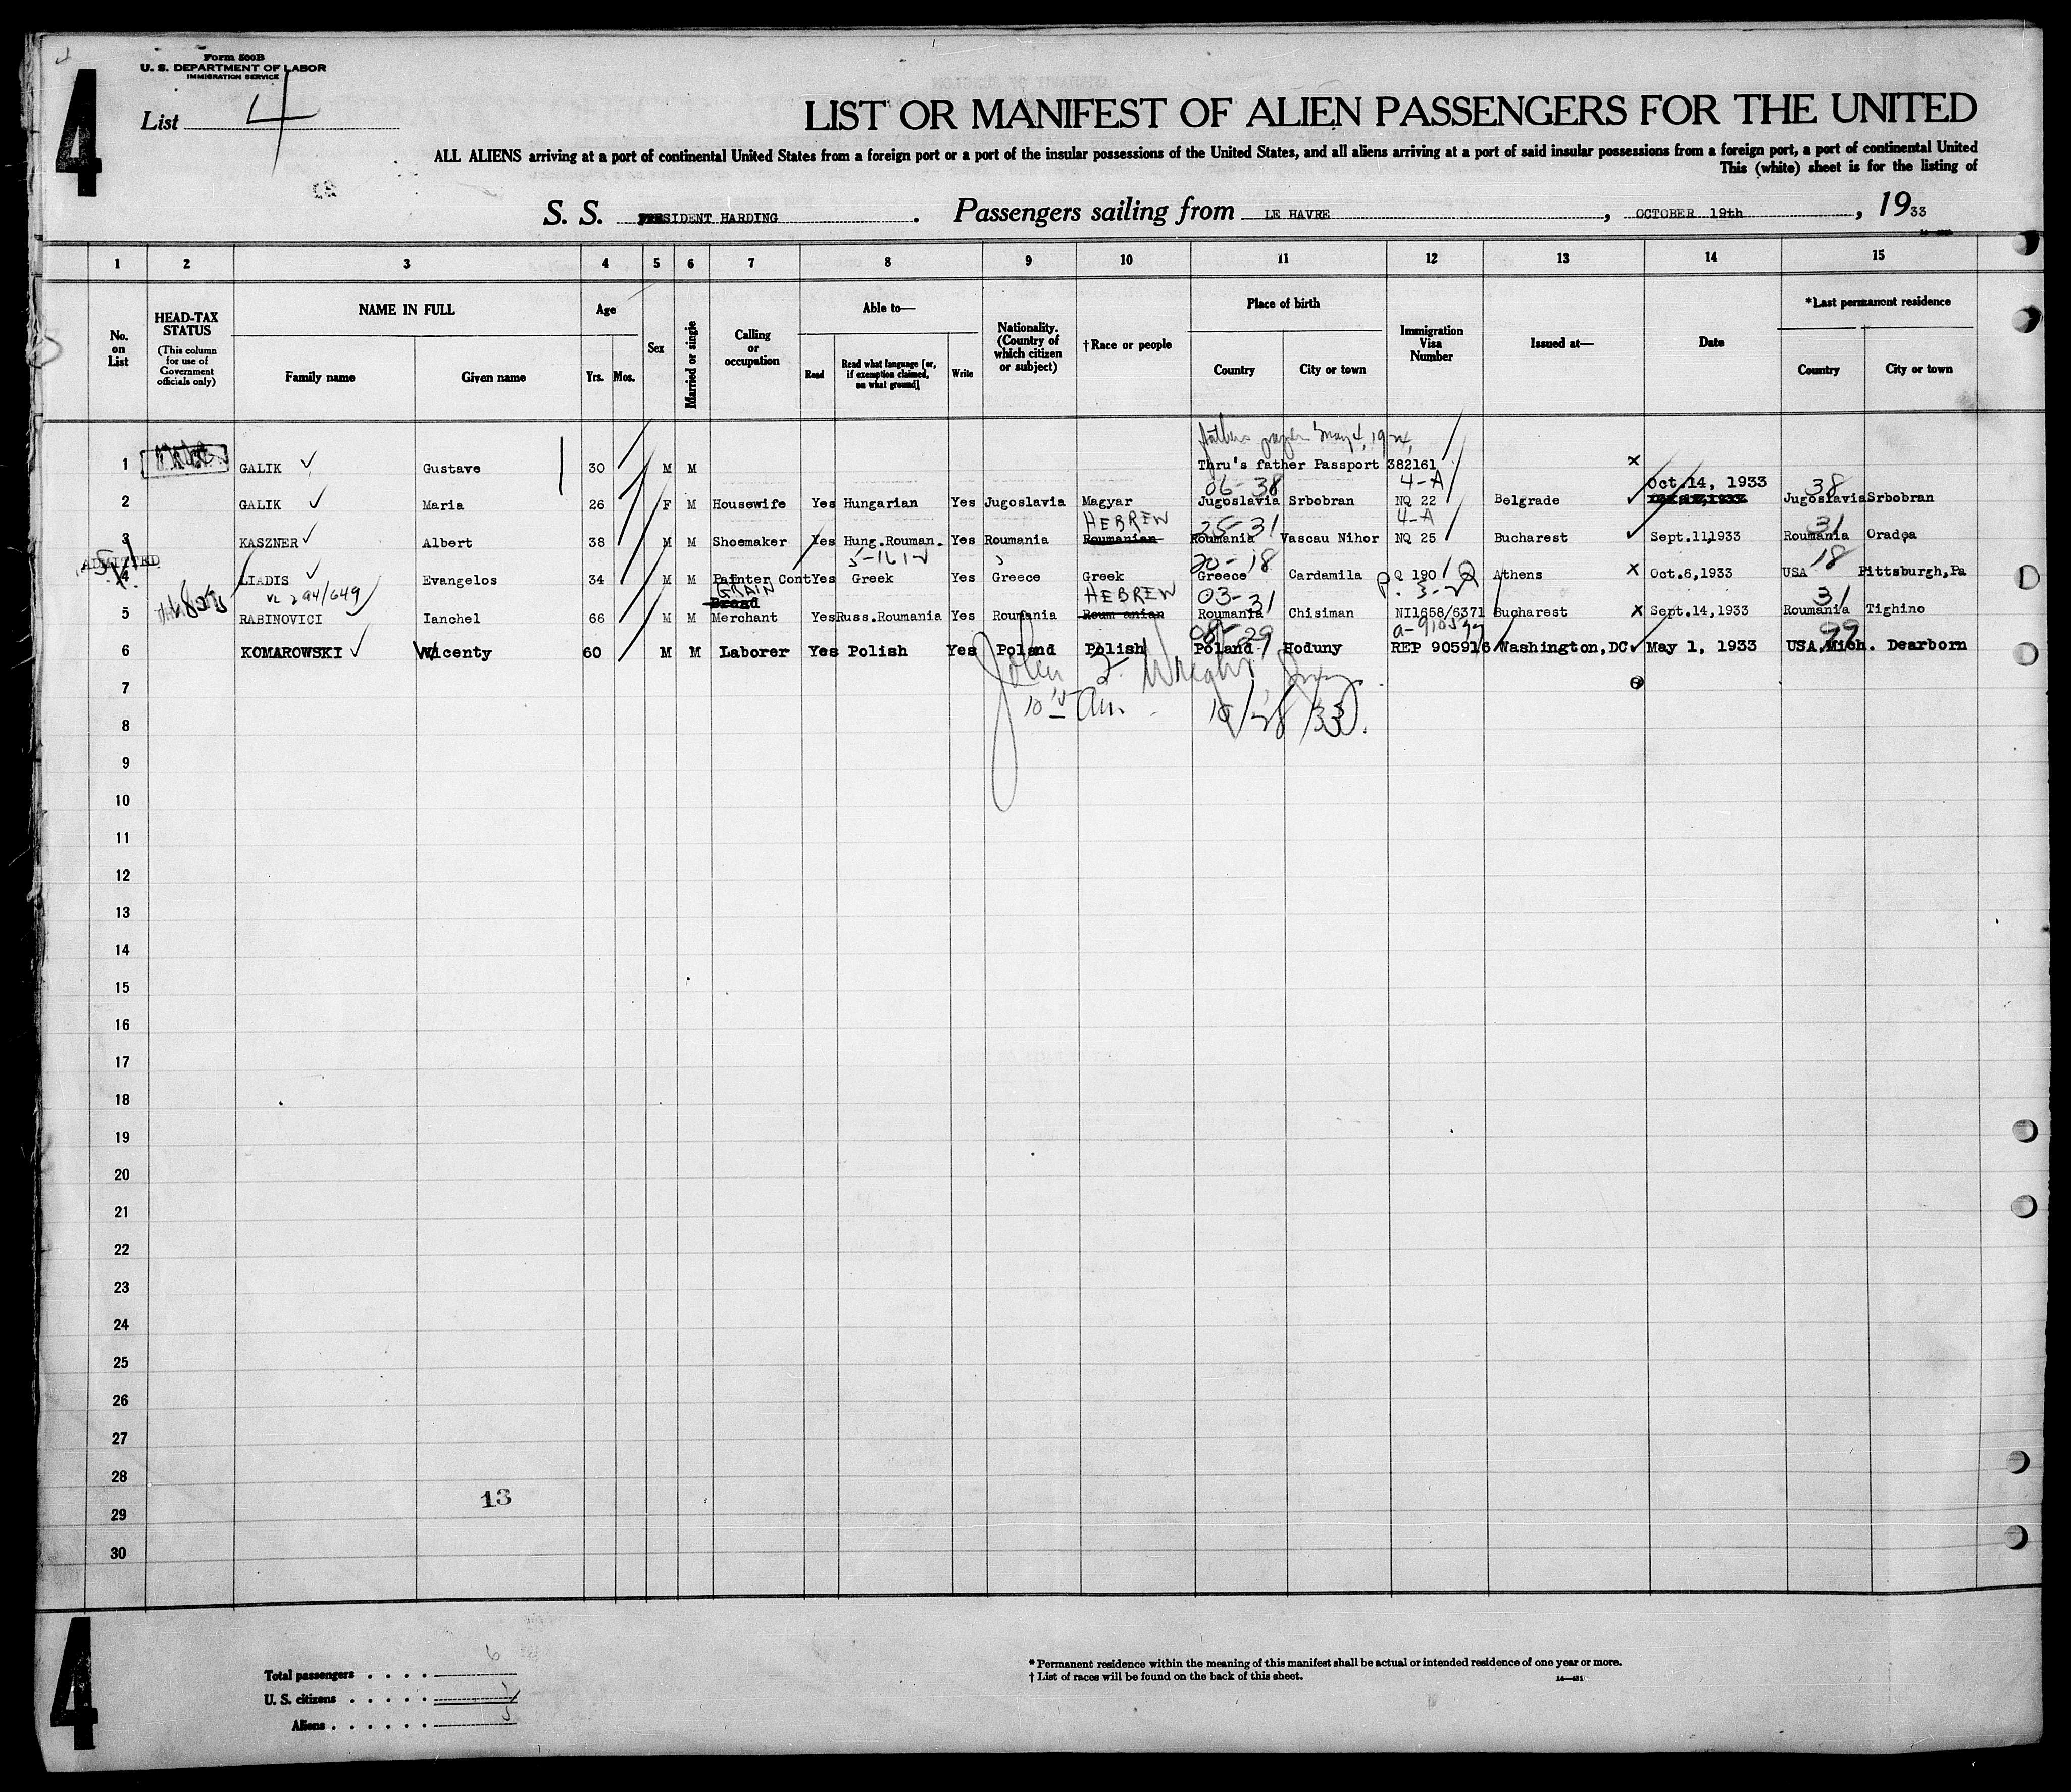 4
Form 500B
U. S. DEPARTMENT OF LABOR
IMMIGRATION SERVICE
List 4
LIST OR MANIFEST OF ALIEN PASSENGERS FOR THE UNITED
ALL ALIENS arriving at a port of continental United States from a foreign port or a port of the insular possessions of the United States, and all aliens arriving at a port of said insular possessions from a foreign port, a port of continental United
This (white) sheet is for the listing of
S. S. PRESIDENT HARDING. Passengers sailing from LE HAVRE, OCTOBER 19th, 1933
1 2 3 4 5 6 7 8 9 10 11 12 13 14 15
No. on List
HEAD-TAX STATUS
(This column for use of Government officials only)
NAME IN FULL
Family name Given name
Age
Yrs. Mos.
Sex
Married or single
Calling or occupation
Able to—
Read
Read what language [or, if exemption claimed, on what ground]
Write
Nationality. (Country of which citizen or subject)
†Race or people
Place of birth
Country City or town
Immigration Visa Number
Issued at—
Date
*Last permanent residence
Country City or town
fathers paper May 4, 1924
1 GALIK ✓ Gustave 30 M M Thru's father Passport 382161 x
06-38 4-A Oct.14, 1933 38
2 GALIK ✓ Maria 26 F M Housewife Yes Hungarian Yes Jugoslavia Magyar Jugoslavia Srbobran NQ 22 Belgrade ✓ Jugoslavia Srbobran
HEBREW 25-31 4-A 31
3 KASZNER ✓ Albert 38 M M Shoemaker Yes Hung.Rouman. Yes Roumania Roumanian Roumania Vascau Nihor NQ 25 Bucharest ✓ Sept.11,1933 Roumania Oradea
ADMITTED 5-1612 20-18 18
4 LIADIS ✓ Evangelos 34 M M Painter Cont Yes Greek Yes Greece Greek Greece Cardamila Q 190 Athens x Oct.6,1933 USA Pittsburgh,Pa
294/649 GRAIN Bread HEBREW 03-31 3-2 31
5 RABINOVICI Ianchel 66 M M Merchant Yes Russ.Roumania Yes Roumania Roum anian Roumania Chisiman NI1658/6371 Bucharest x Sept.14,1933 Roumania Tighino
08-29 99
6 KOMAROWSKI ✓ Wicenty 60 M M Laborer Yes Polish Yes Poland Polish Poland Hoduny REP 905916 Washington,DC ✓ May 1, 1933 USA,Mich. Dearborn
John F. Wright
7
10/28/33.
8
9
10
11
12
13
14
15
16
17
18
19
20
21
22
23
24
25
26
27
28
13
29
30
4
Total passengers . . . . 6
U. S. citizens . . . . . 1
Aliens . . . . . . 5
* Permanent residence within the meaning of this manifest shall be actual or intended residence of one year or more.
† List of races will be found on the back of this sheet.
14—431